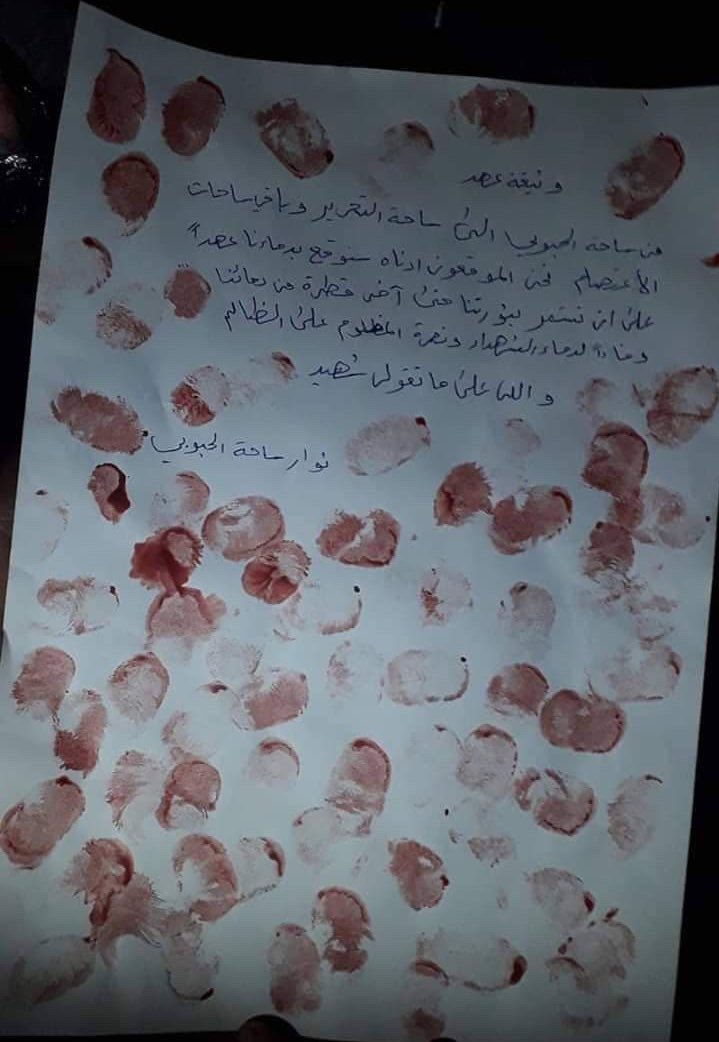 وثيقة عهد
من ساحة الحبوبي الى ساحة التحرير وباقي ساحات
الأعتصام نحن الموقعون ادناه سنوقع بدمائنا عهداً
على ان نستمر بثورتنا حتى آخر قطرة من دمائنا
وفاءاً لدماء الشهداء ونصرة المظلوم على الظالم
والله على ما نقول شهيد
ثوار ساحة الحبوبي